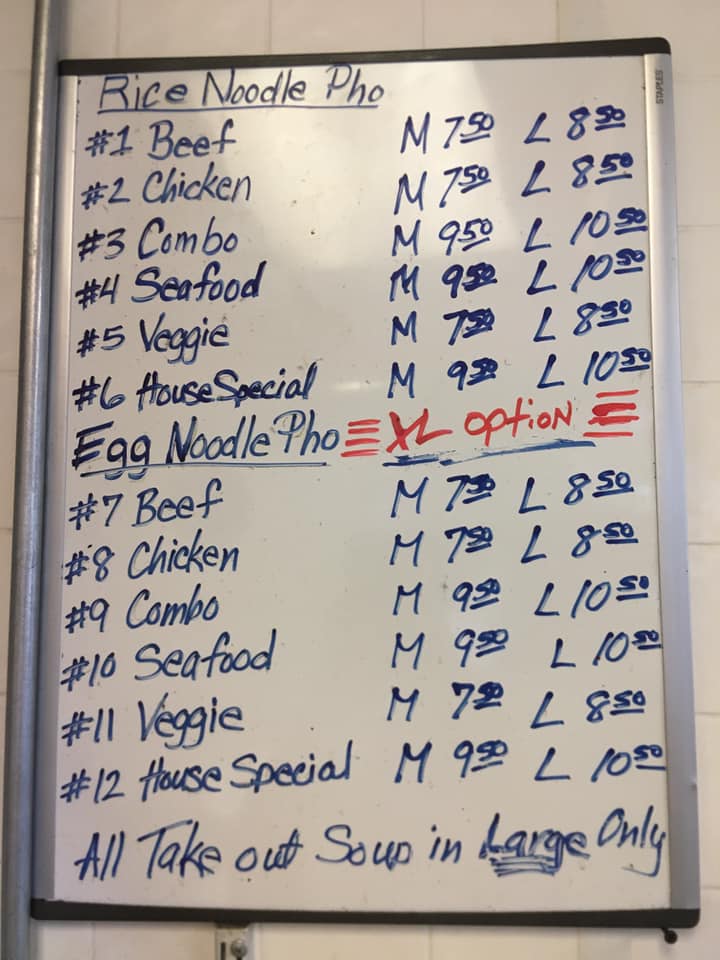 Rice Noodle Pho
#1 Beef M 7.50 L 8.50
#2 Chicken M 7.50 L 8.50
#3 Combo M 9.50 L 10.50
#4 Seafood M 9.50 L 10.50
#5 Veggie M 7.50 L 8.50
#6 House Special M 9.50 L 10.50
Egg Noodle Pho XL option
#7 Beef M 7.50 L 8.50
#8 Chicken M 7.50 L 8.50
#9 Combo M 9.50 L 10.50
#10 Seafood M 9.50 L 10.50
#11 Veggie M 7.50 L 8.50
#12 House Special M 9.50 L 10.50
All Take out Soup in Large Only
STAPLES